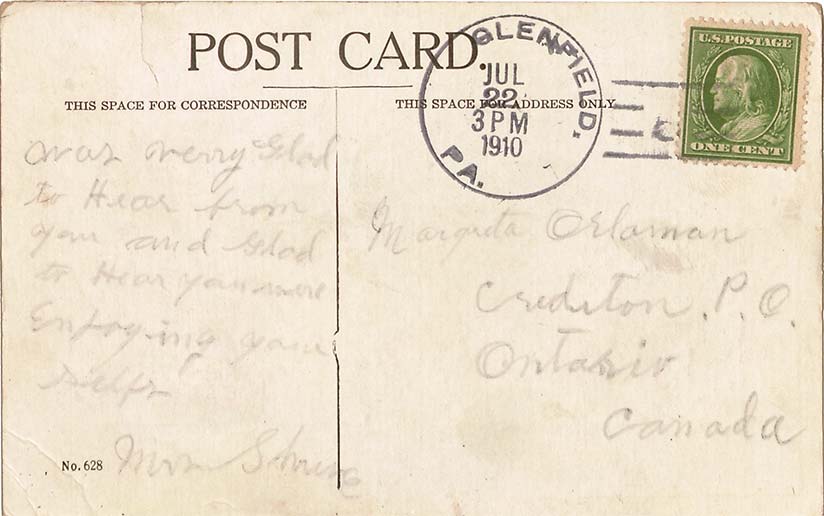 POST CARD.
THIS SPACE FOR CORRESPONDENCE
THIS SPACE FOR ADDRESS ONLY
GLENFIELD,
JUL
22
3 PM
1910
PA.
U.S. POSTAGE
ONE CENT
was verry Glad
to Hear from
you and Glad
to Hear you were
Enjoying your
selfs
Mrs
No. 628
Margreta
Crediton. P. O.
Ontario
Canada